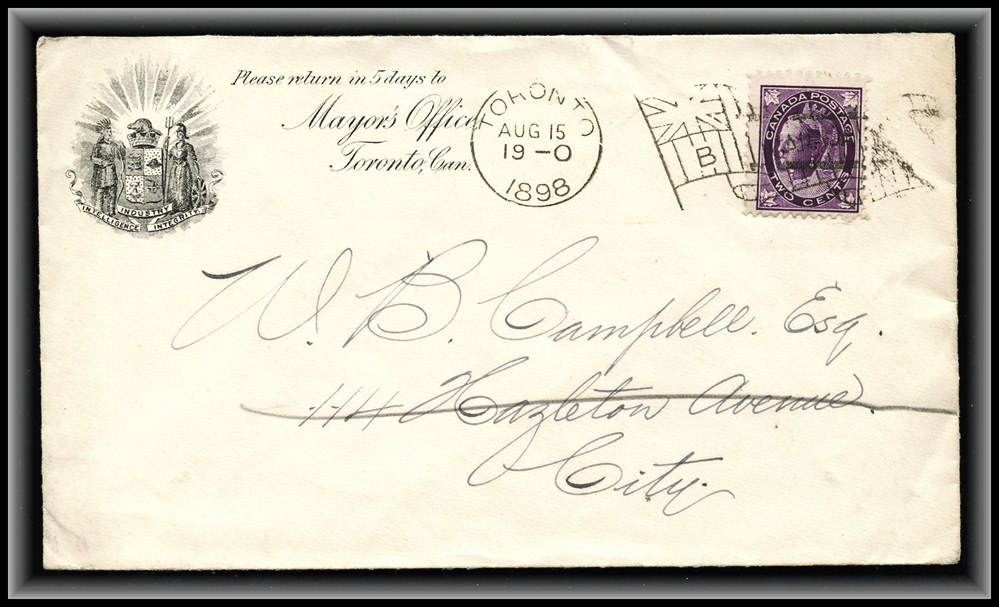 Please return in 5 days to
Mayor's Office
Toronto, Can.
INDUSTRY
INTELLIGENCE INTEGRITY
TORONTO
AUG 15
19-0
1898
B
CANADA POSTAGE
TWO CENTS
W. B. Campbell. Esq.
114 Hazleton Avenue.
City.